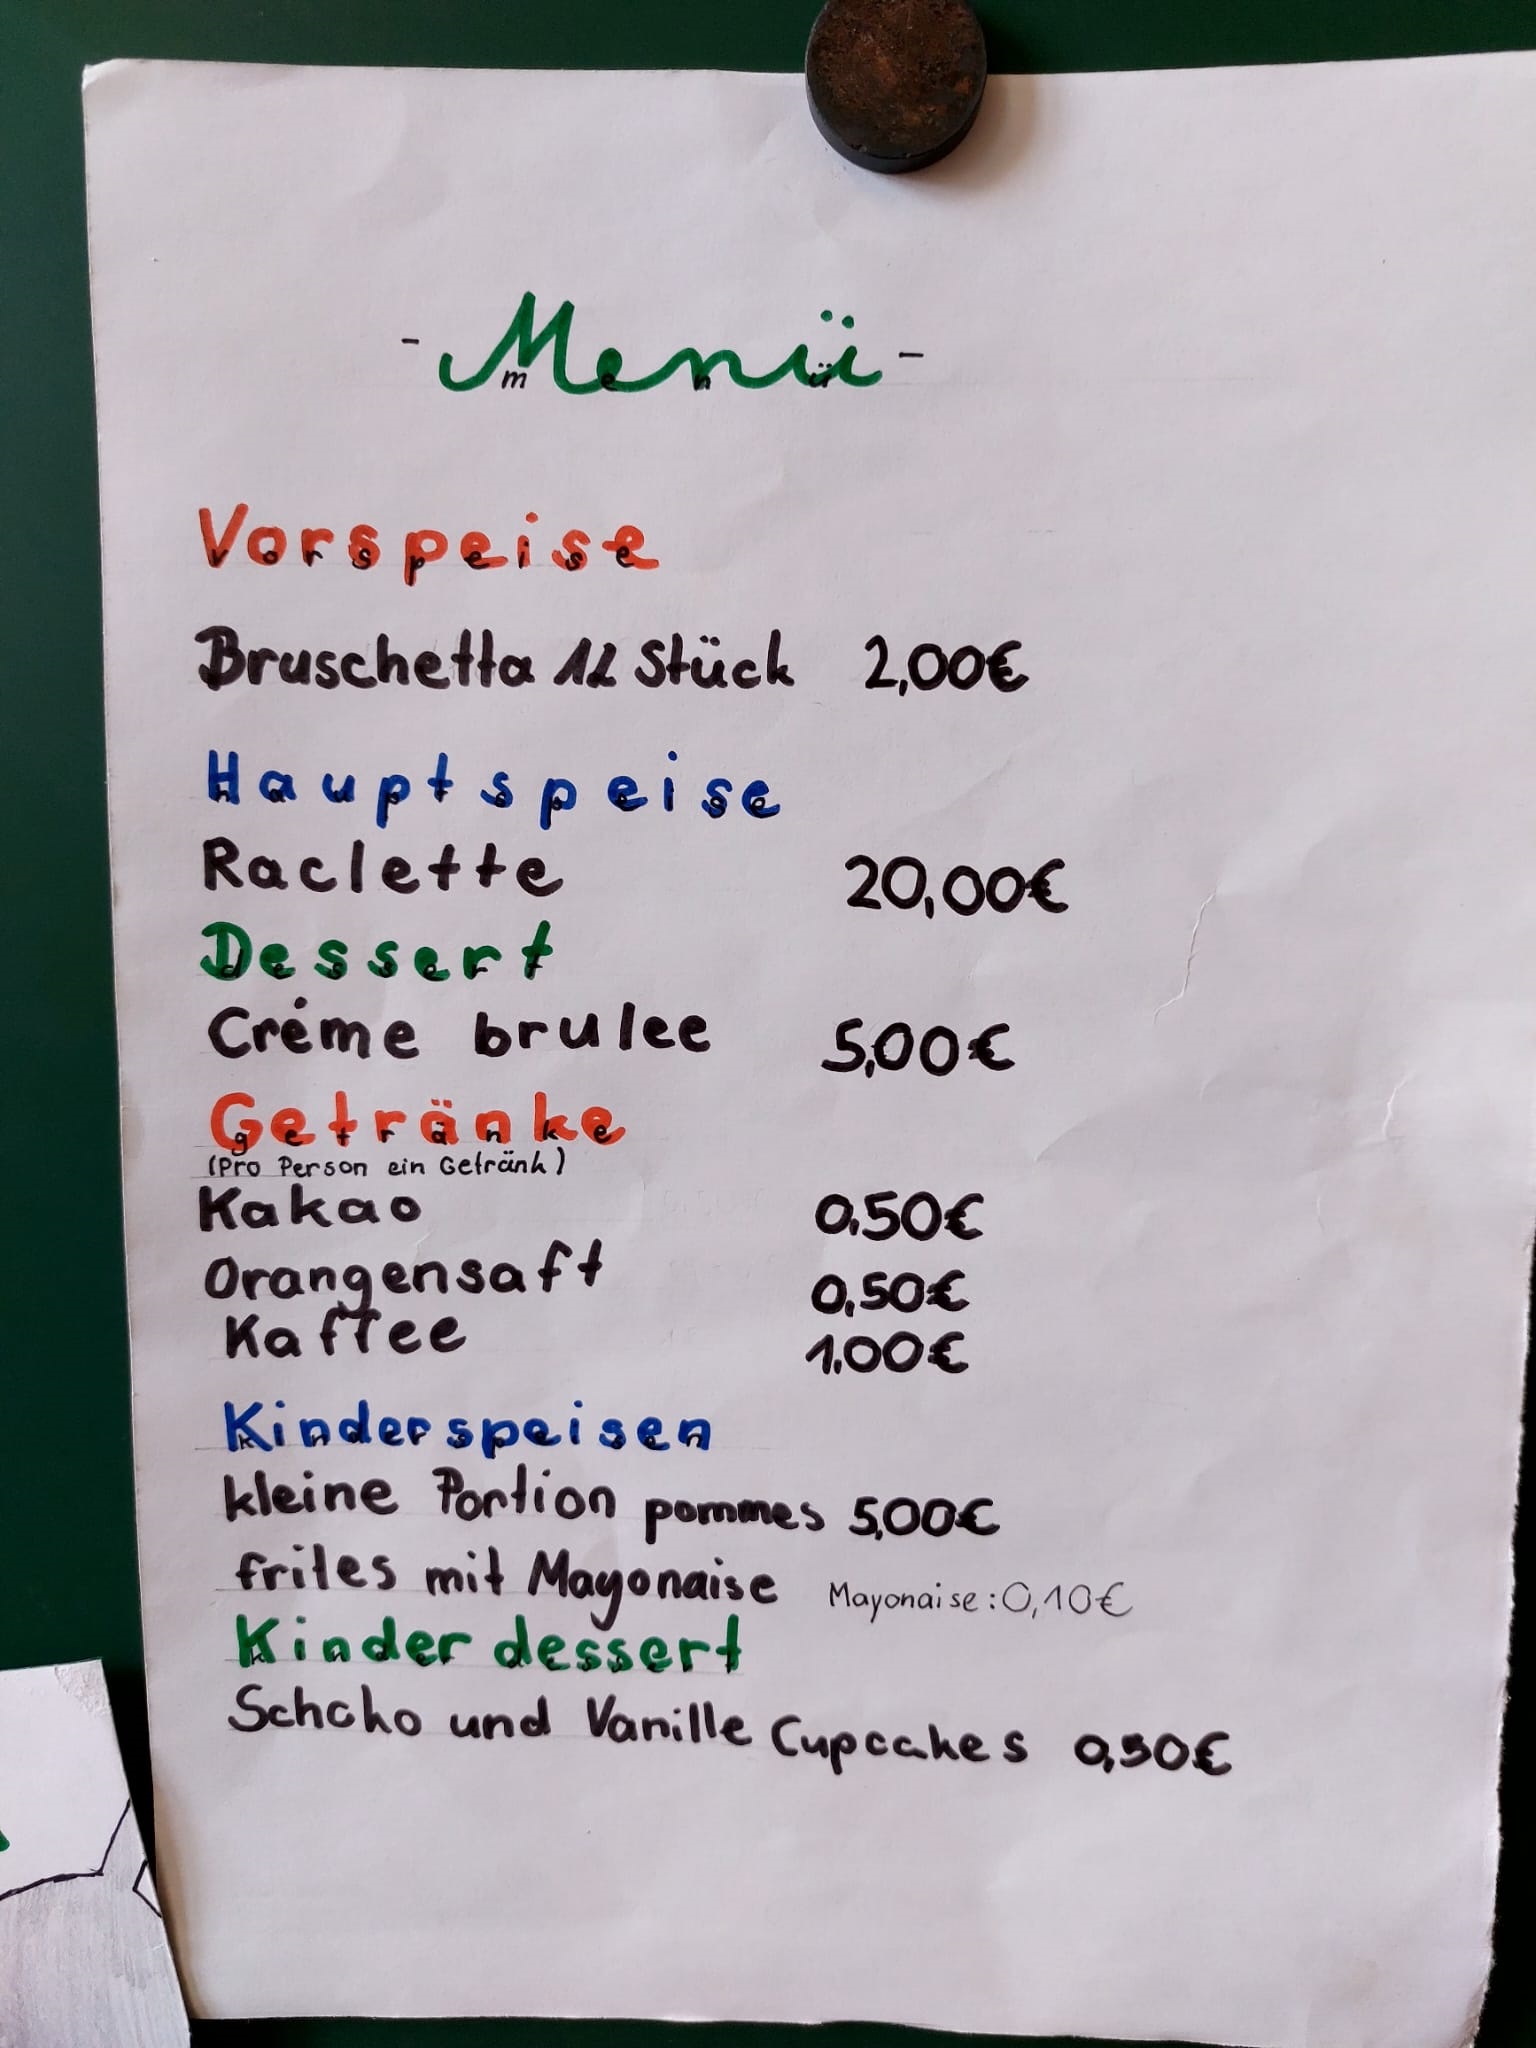 - Menü -
m e n ü
Vorspeise
vorspeise
Bruschetta 12 Stück 2,00€
Hauptspeise
hauptspeise
Raclette 20,00€
Dessert
dessert
Créme brulee 5,00€
Getränke
getränke
(Pro Person ein Getränk)
Kakao 0,50€
Orangensaft 0,50€
Kaffee 1.00€
Kinderspeisen
kinderspeisen
kleine Portion pommes 5,00€
frites mit Mayonaise Mayonaise: 0,10€
Kinder dessert
kinder dessert
Schoko und Vanille Cupcakes 0,50€